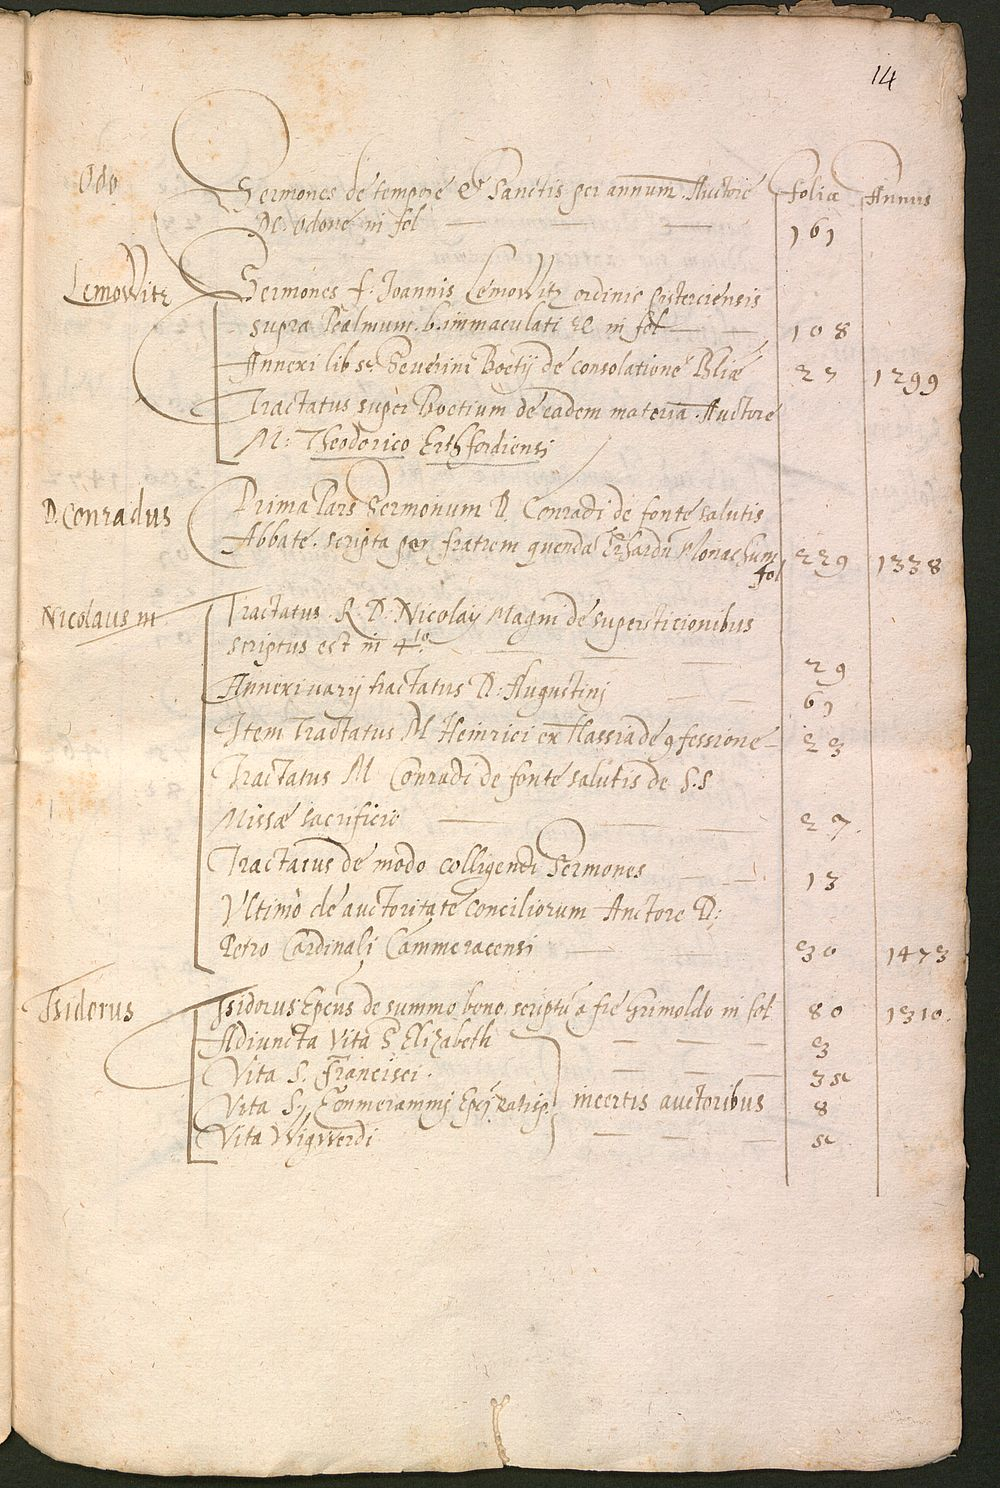 14
Odo Sermones de tempore et Sanctis per annum. Auctore foliæ Annus
Odone in fol 161
Lemowitz Sermones f. Joannis Lemowitz ordinis Cisterciensis
supra Psalmum. b. immaculati &c in fol 108
Annexi lib Severini Boetij de consolatione Phiæ 27 1299
Tractatus super Boetium de eadem materia. Auctore
M: Theodorico Erthfordiensi
D. Conradus Prima Pars Sermonum D. Conradi de fonte salutis
Abbate. scripta per fratrem quendã Erhardũ Monachum 229 1338
fol
Nicolaus m Tractatus R. D. Nicolay Magni de supersticionibus
scriptus est in 4to. 29
Annexi varij tractatus D: Augustinj 61
Item Tractatus M Heinrici ex Hassia de 9fessione 23
Tractatus M Conradi de fonte salutis de S.S
Missæ sacrificio 27.
Tractatus de modo colligendi Sermones 13
Ultimò de auctoritate conciliorum Auctore D:
Petro Cardinali Cammeracensi 30 1473
Isidorus Isidorus Epcus de summo bono, scriptũ a fre Grimoldo in fol 80 1310.
Adiuncta Vita S Elizabeth 3
Vita S. Francisci. 32
Vita S. Emmerammj Epcj Ratisp incertis auctoribus 8
Vita Wigwerdi 2